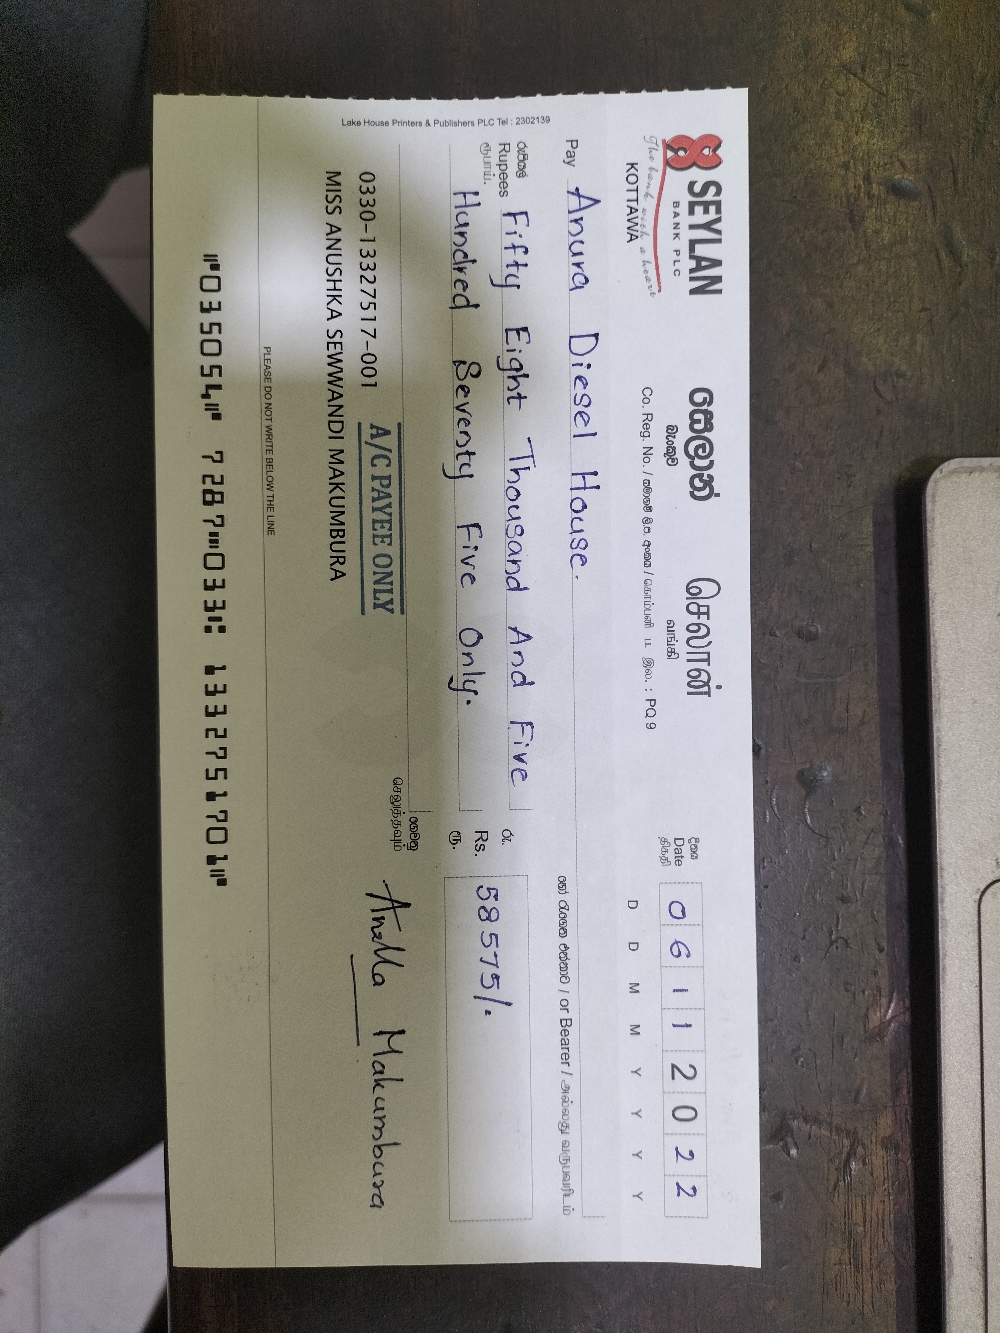 SEYLAN
BANK PLC
The bank with a heart
KOTTAWA
සෙලාන්
බැංකුව
செலான்
வங்கி
Co. Reg. No. / සමාගම් ලි.ප. අංකය / கொம்பனி ப. இல. : PQ 9
දිනය
Date
திகதி
0 6 1 1 2 0 2 2
D D M M Y Y Y Y
Pay Anura Diesel House.
/ or Bearer / அல்லது
රුපියල්
Rupees Fifty Eight Thousand And Five
ரூபாய்.
Hundred Seventy Five Only.
රු.
Rs. 58575/.
ரூ.
A/C PAYEE ONLY
ගෙවනු
செலுத்தவும்
0330-13327517-001
MISS ANUSHKA SEWWANDI MAKUMBURA
Makumbura
PLEASE DO NOT WRITE BELOW THE LINE
⑈035054⑈ 7287⑉033⑆ 1332751701⑈
Lake House Printers & Publishers PLC Tel : 2302139